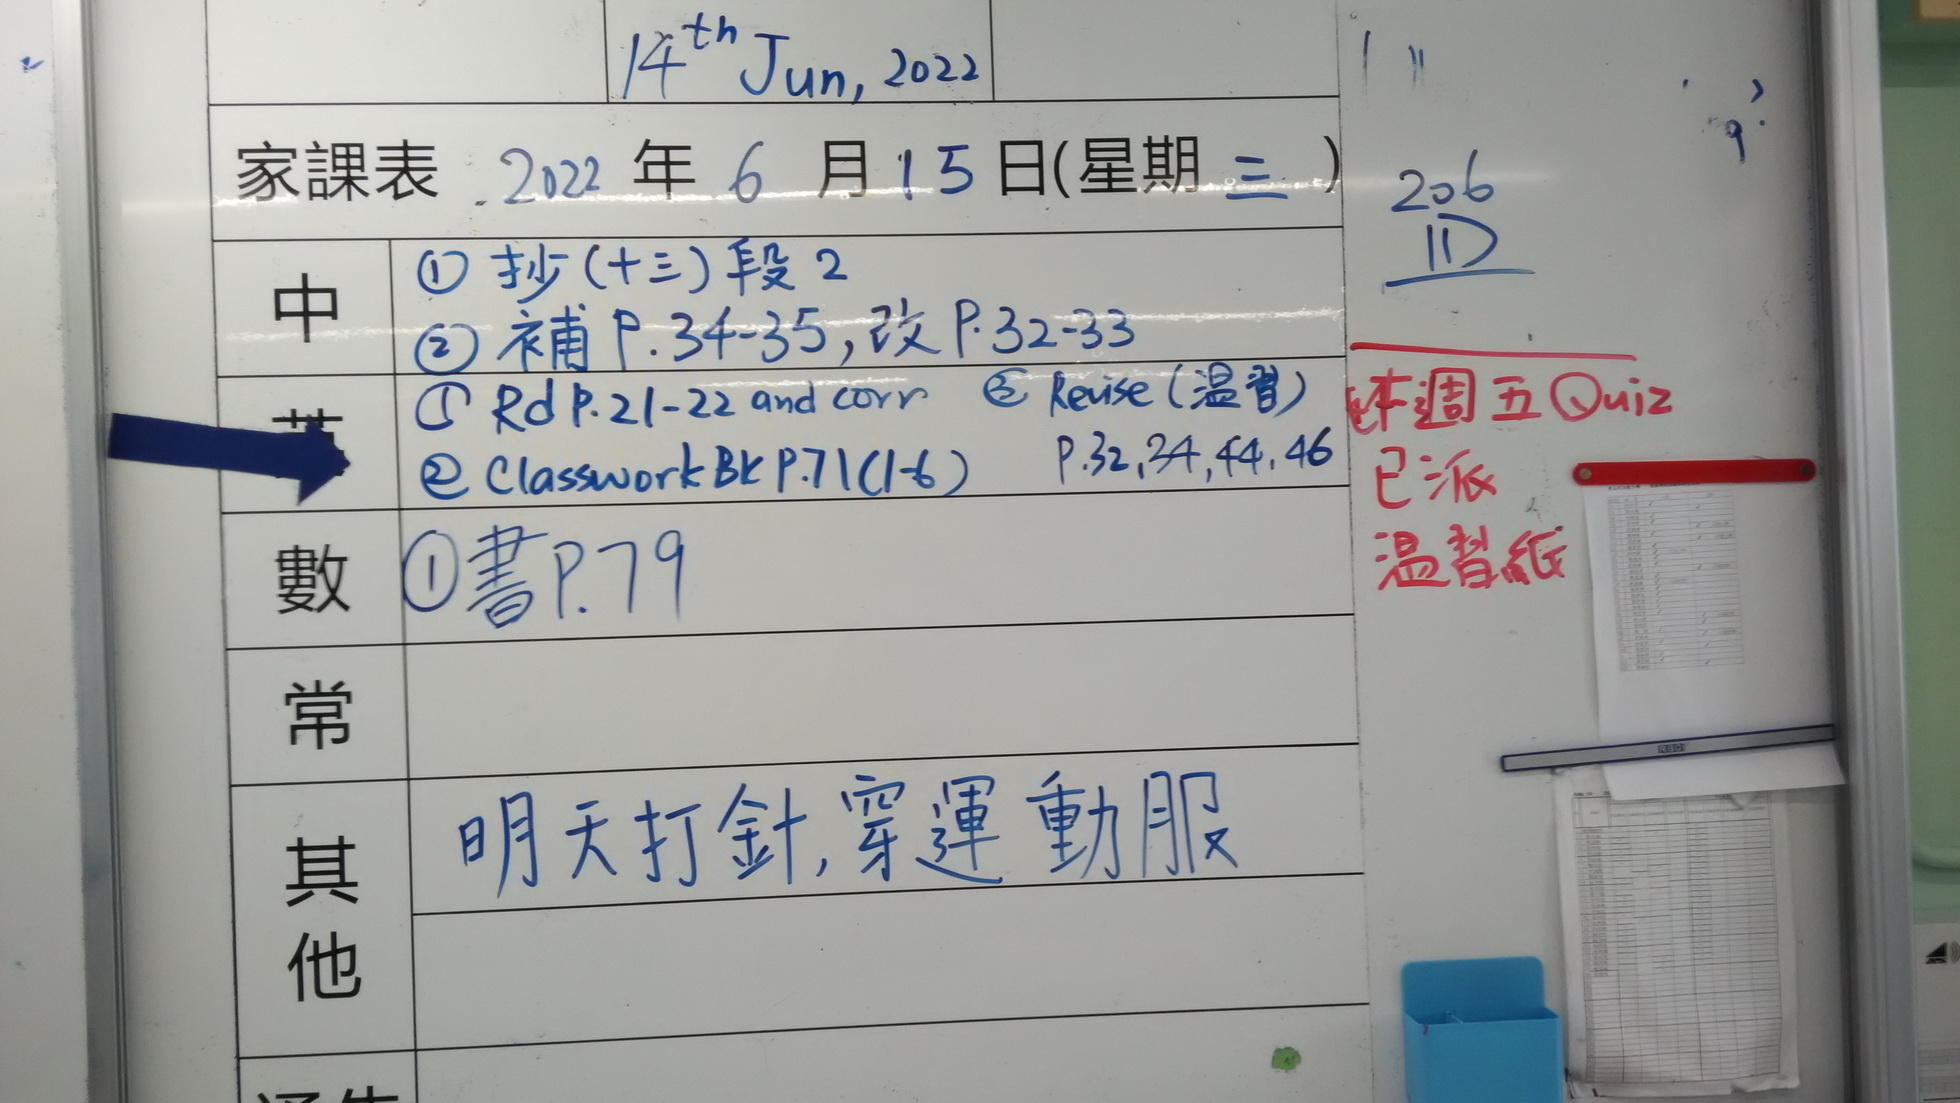 14th Jun, 2022
家課表 2022 年 6 月 15 日(星期 三 )
中
① 抄(十三)段 2
② 補 P.34-35, 改 P.32-33
英
① Rd P.21-22 and corr
② Classwork BK P.71(1-6)
③ Revise (温習)
P.32, 34, 44, 46
數
① 書 P.79
常
其他
明天打針, 穿運動服
206
本週五 Quiz
已派
温習紙